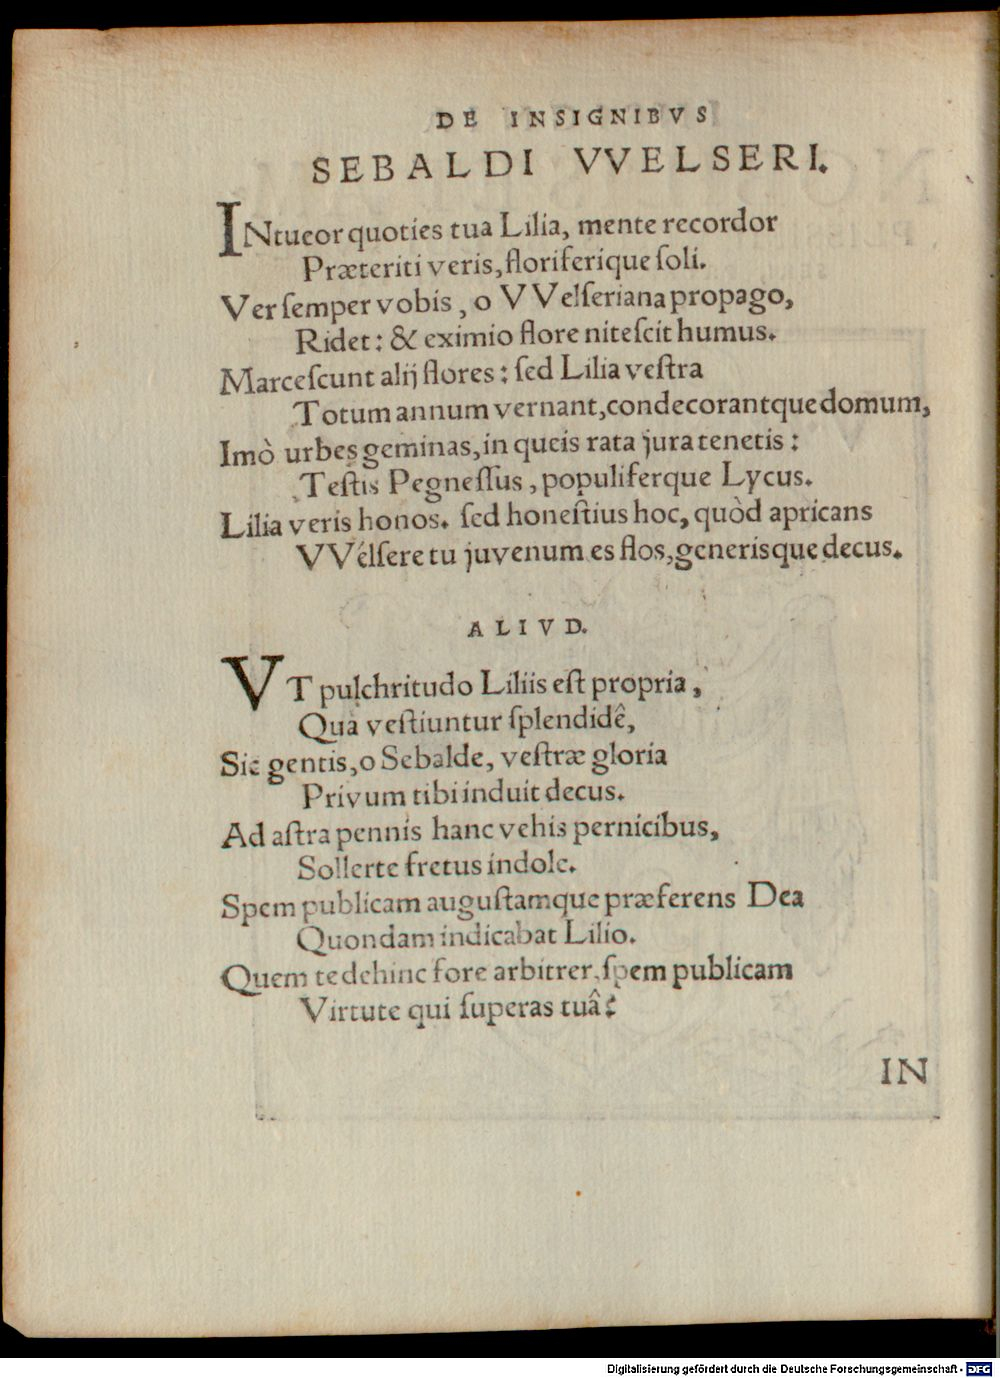 DE INSIGNIBVS
SEBALDI VVELSERI.
INtueor quoties tua Lilia, mente recordor
Præteriti veris, floriferique ſoli.
Ver ſemper vobis, o VVelſeriana propago,
Ridet: & eximio flore niteſcit humus.
Marceſcunt alij flores: ſed Lilia veſtra
Totum annum vernant, condecorantque domum,
Imò urbes geminas, in queis rata jura tenetis:
Teſtis Pegneſſus, populiferque Lycus.
Lilia veris honos. ſed honeſtius hoc, quòd apricans
VVélſere tu juvenum es flos, generisque decus.
ALIVD.
VT pulchritudo Liliis eſt propria,
Quà veſtiuntur ſplendidê,
Sic gentis, o Sebalde, veſtræ gloria
Privum tibi induit decus.
Ad aſtra pennis hanc vehis pernicibus,
Sollerte fretus indole.
Spem publicam auguſtamque præferens Dea
Quondam indicabat Lilio.
Quem te dehinc fore arbitrer, ſpem publicam
Virtute qui ſuperas tuâ?
IN
Digitalisierung gefördert durch die Deutsche Forschungsgemeinschaft - DFG